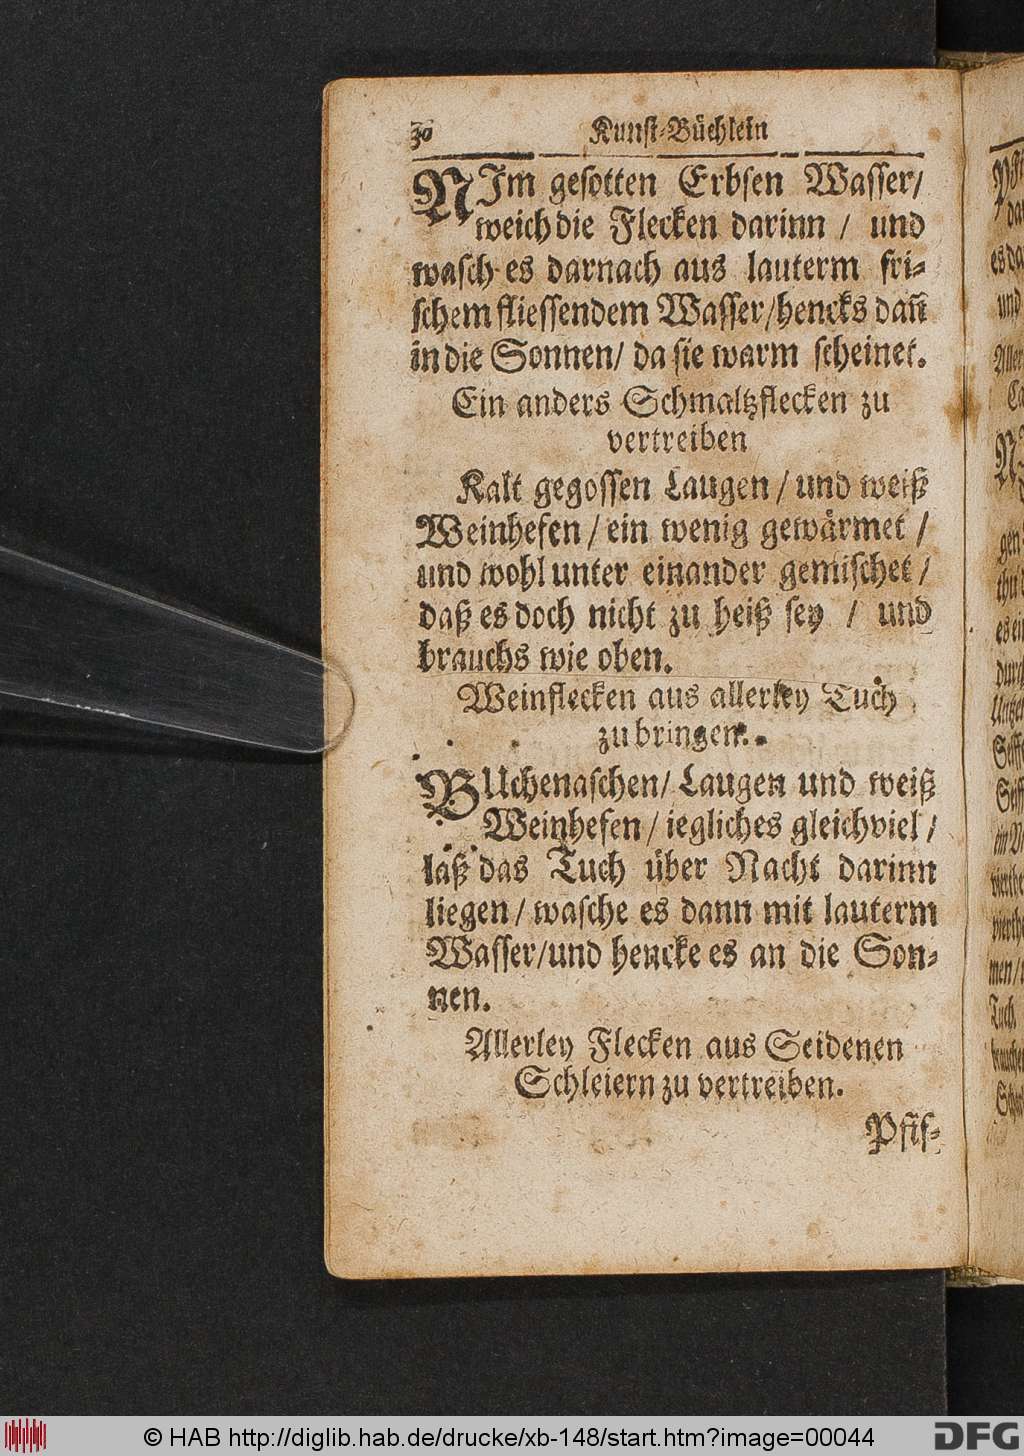 30 Kunst-Büchlein
NIm gesotten Erbsen Wasser/
weich die Flecken darinn / und
wasch es darnach aus lauterm fri-
schem fliessendem Wasser/hencks dañ
in die Sonnen/ da sie warm scheinet.
Ein anders Schmaltzflecken zu
vertreiben
Kalt gegossen Laugen / und weiß
Weinhefen / ein wenig gewärmet /
und wohl unter einander gemischet /
daß es doch nicht zu heiß sey / und
brauchs wie oben.
Weinflecken aus allerley Tuch
zu bringen.
BUchenaschen/ Laugen und weiß
Weinhefen / iegliches gleichviel /
laß das Tuch über Nacht darinn
liegen / wasche es dann mit lauterm
Wasser/und hencke es an die Son-
nen.
Allerley Flecken aus Seidenen
Schleiern zu vertreiben.
Pfif-
© HAB http://diglib.hab.de/drucke/xb-148/start.htm?image=00044
DFG